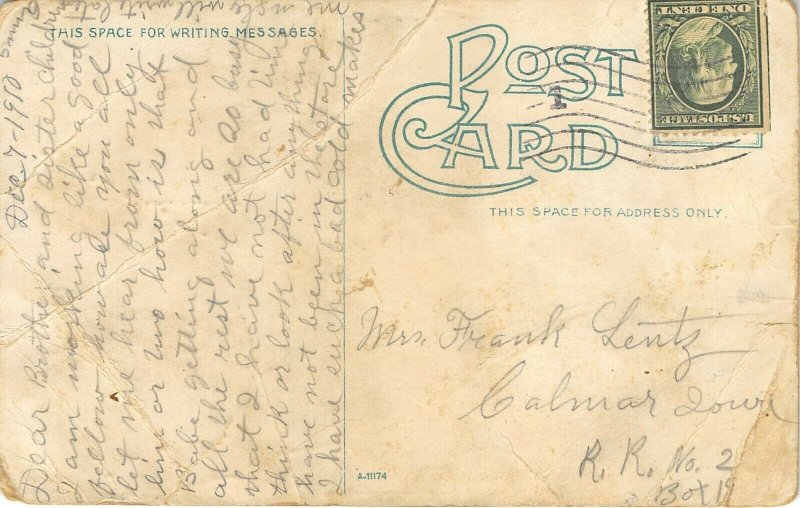 THIS SPACE FOR WRITING MESSAGES.
POST
CARD
ONE CENT
U.S. POSTAGE
1
THIS SPACE FOR ADDRESS ONLY.
Mrs. Frank Lentz
Calmar Iowa
R. R. No. 2
Box 19
A-11174
Dec 7-1910
Dear Brother and sister children
I am working like a good
fellow how are you all
let me hear from only
line or two how is that
Babe getting along and
all the rest we are so busy
that I have not had time
think or look after anything
have not been in the store
I have such a bad cold makes
me ugly will write later